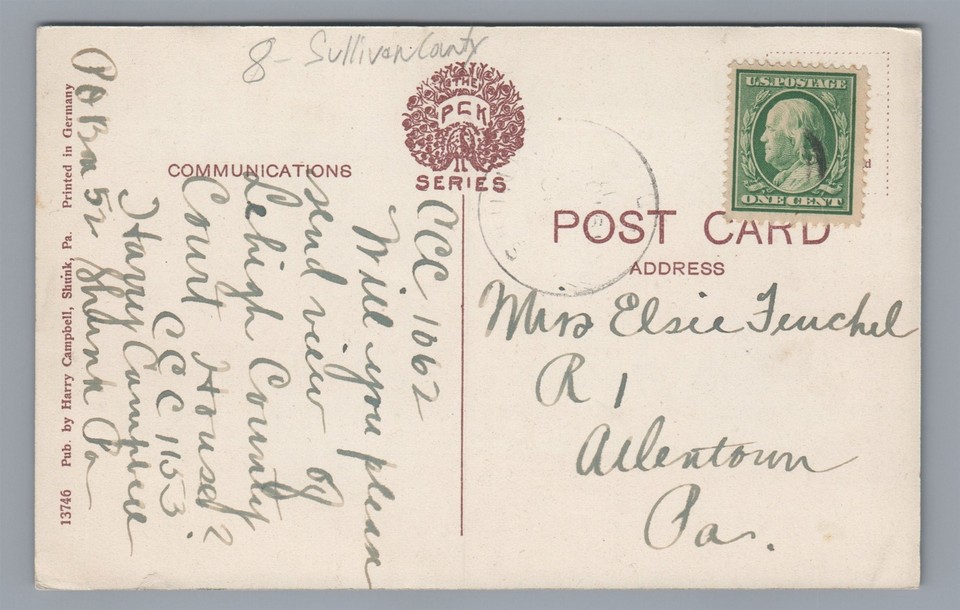 8 - Sullivan County
THE
PCK
SERIES
U.S. POSTAGE
ONE CENT
COMMUNICATIONS
POST CARD
ADDRESS
CCC 1062
Will you please
send view of
Lehigh County
Court House?
CCC 1153
Harry Campbell
Shunk Pa
P O Box 52
Miss Elsie Feuchel
R 1
Allentown
Pa.
13746 Pub. by Harry Campbell, Shunk, Pa. Printed in Germany